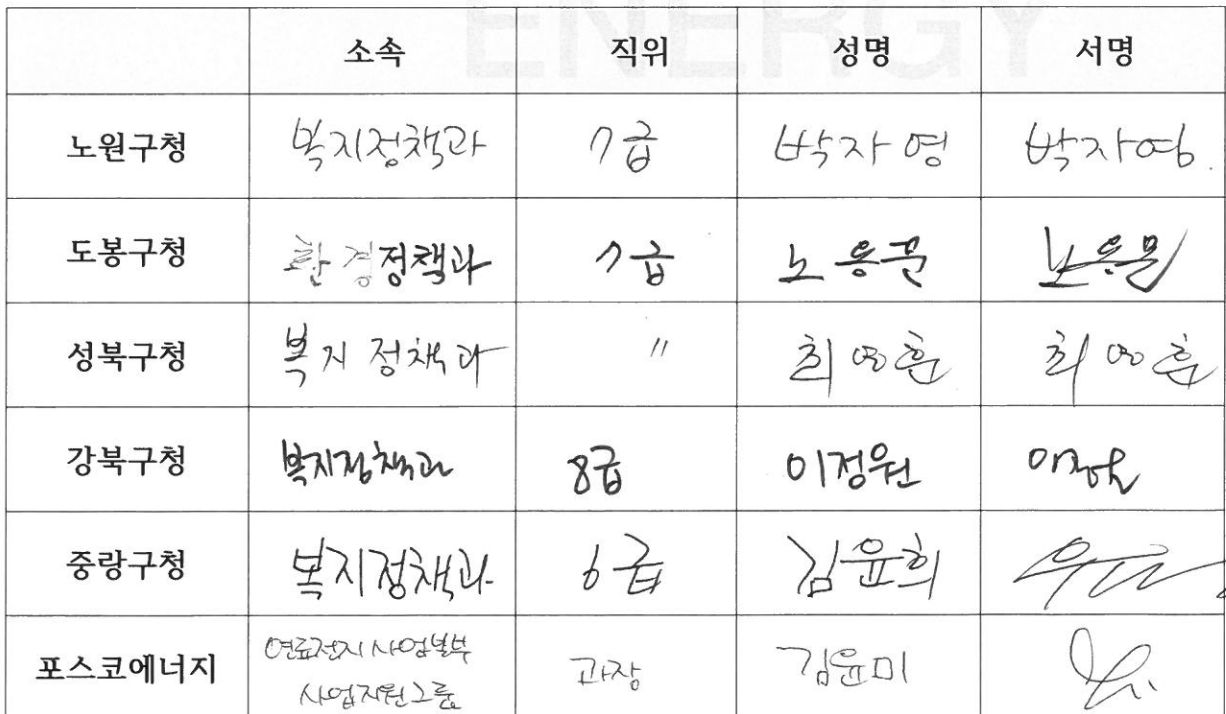 ENERGY
소속 직위 성명 서명
노원구청 복지정책과 7급 박자영 박자영
도봉구청 환경정책과 7급 노용문 노용문
성북구청 복지정책과 〃 최영훈 최영훈
강북구청 복지정책과 8급 이정원 이정원
중랑구청 복지정책과 6급 김윤희
포스코에너지 연료전지사업본부 과장 김윤미
사업지원그룹